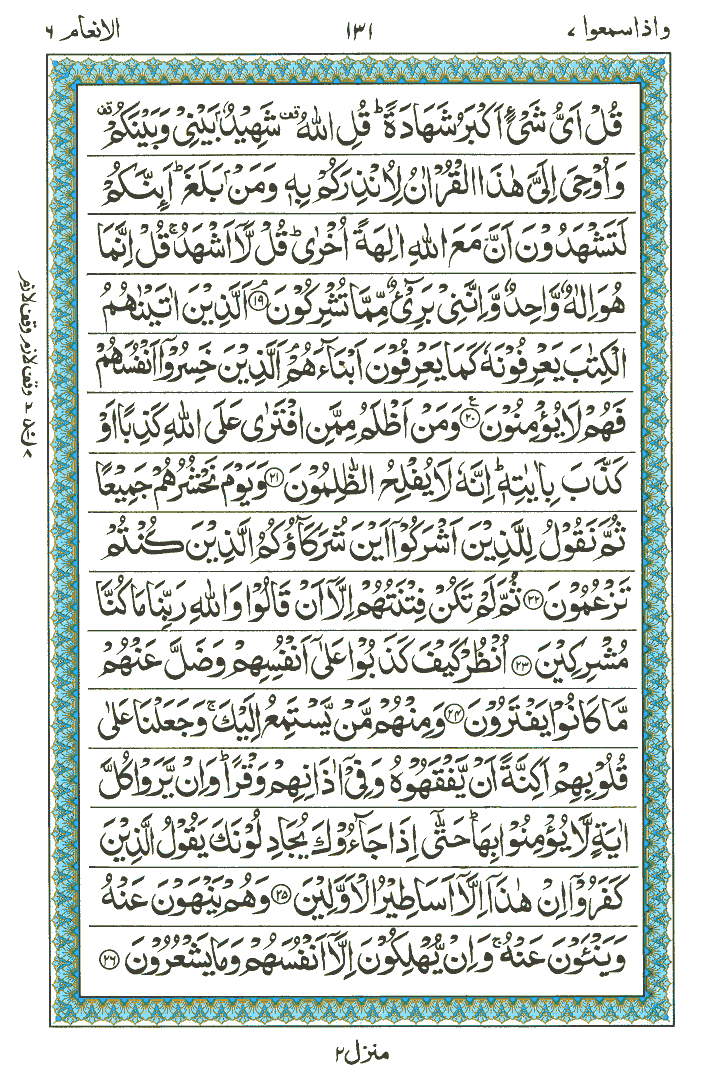 واذاسمعوا ٧
١٣١
الانعام ٦
قُلۡ اَىُّ شَىۡءٍ اَكۡبَرُ شَهَادَةً ؕ قُلِ اللّٰهُ ۟ۙ شَهِيۡدٌۢ بَيۡنِىۡ وَبَيۡنَكُمۡ ۟
وَاُوۡحِىَ اِلَىَّ هٰذَا الۡقُرۡاٰنُ لِاُنۡذِرَكُمۡ بِهٖ وَمَنۡۢ بَلَغَ ؕ اَٮِٕنَّكُمۡ
لَتَشۡهَدُوۡنَ اَنَّ مَعَ اللّٰهِ اٰلِهَةً اُخۡرٰى ؕ قُلْ لَّاۤ اَشۡهَدُ ۚ قُلۡ اِنَّمَا
هُوَ اِلٰهٌ وَّاحِدٌ وَّاِنَّنِىۡ بَرِىۡٓءٌ مِّمَّا تُشۡرِكُوۡنَ ۘ‏ ﴿۱۹﴾ اَلَّذِيۡنَ اٰتَيۡنٰهُمُ
الۡـكِتٰبَ يَعۡرِفُوۡنَهٗ كَمَا يَعۡرِفُوۡنَ اَبۡنَآءَهُمُ ۘ اَ لَّذِيۡنَ خَسِرُوۡۤا اَنۡفُسَهُمۡ
فَهُمۡ لَا يُؤۡمِنُوۡنَ ﴿۲۰﴾ وَمَنۡ اَظۡلَمُ مِمَّنِ افۡتَرٰى عَلَى اللّٰهِ كَذِبًا اَوۡ
كَذَّبَ بِاٰيٰتِهٖ ؕ اِنَّهٗ لَا يُفۡلِحُ الظّٰلِمُوۡنَ ﴿۲۱﴾ وَيَوۡمَ نَحۡشُرُهُمۡ جَمِيۡعًا
ثُمَّ نَقُوۡلُ لِلَّذِيۡنَ اَشۡرَكُوۡۤا اَيۡنَ شُرَكَآؤُكُمُ الَّذِيۡنَ كُنۡتُمۡ
تَزۡعُمُوۡنَ ﴿۲۲﴾ ثُمَّ لَمۡ تَكُنۡ فِتۡنَـتُهُمۡ اِلَّاۤ اَنۡ قَالُوۡا وَاللّٰهِ رَبِّنَا مَا كُنَّا
مُشۡرِكِيۡنَ ﴿۲۳﴾ اُنْظُرۡ كَيۡفَ كَذَبُوۡا عَلٰٓى اَنۡفُسِهِمۡ وَضَلَّ عَنۡهُمۡ
مَّا كَانُوۡا يَفۡتَرُوۡنَ ﴿۲۴﴾ وَمِنۡهُمۡ مَّنۡ يَّسۡتَمِعُ اِلَيۡكَ ۚ وَجَعَلۡنَا عَلٰى
قُلُوۡبِهِمۡ اَكِنَّةً اَنۡ يَّفۡقَهُوۡهُ وَفِىۡۤ اٰذَانِهِمۡ وَقۡرًا ؕ وَاِنۡ يَّرَوۡا كُلَّ
اٰيَةٍ لَّا يُؤۡمِنُوۡا بِهَا ؕ حَتّٰٓى اِذَا جَآءُوۡكَ يُجَادِلُوۡنَكَ يَقُوۡلُ الَّذِيۡنَ
كَفَرُوۡۤا اِنۡ هٰذَاۤ اِلَّاۤ اَسَاطِيۡرُ الۡاَوَّلِيۡنَ ﴿۲۵﴾ وَهُمۡ يَنۡهَوۡنَ عَنۡهُ
وَيَنۡــَٔوۡنَ عَنۡهُ ۚ وَاِنۡ يُّهۡلِكُوۡنَ اِلَّاۤ اَنۡفُسَهُمۡ وَمَا يَشۡعُرُوۡنَ ﴿۲۶﴾
منزل ٢